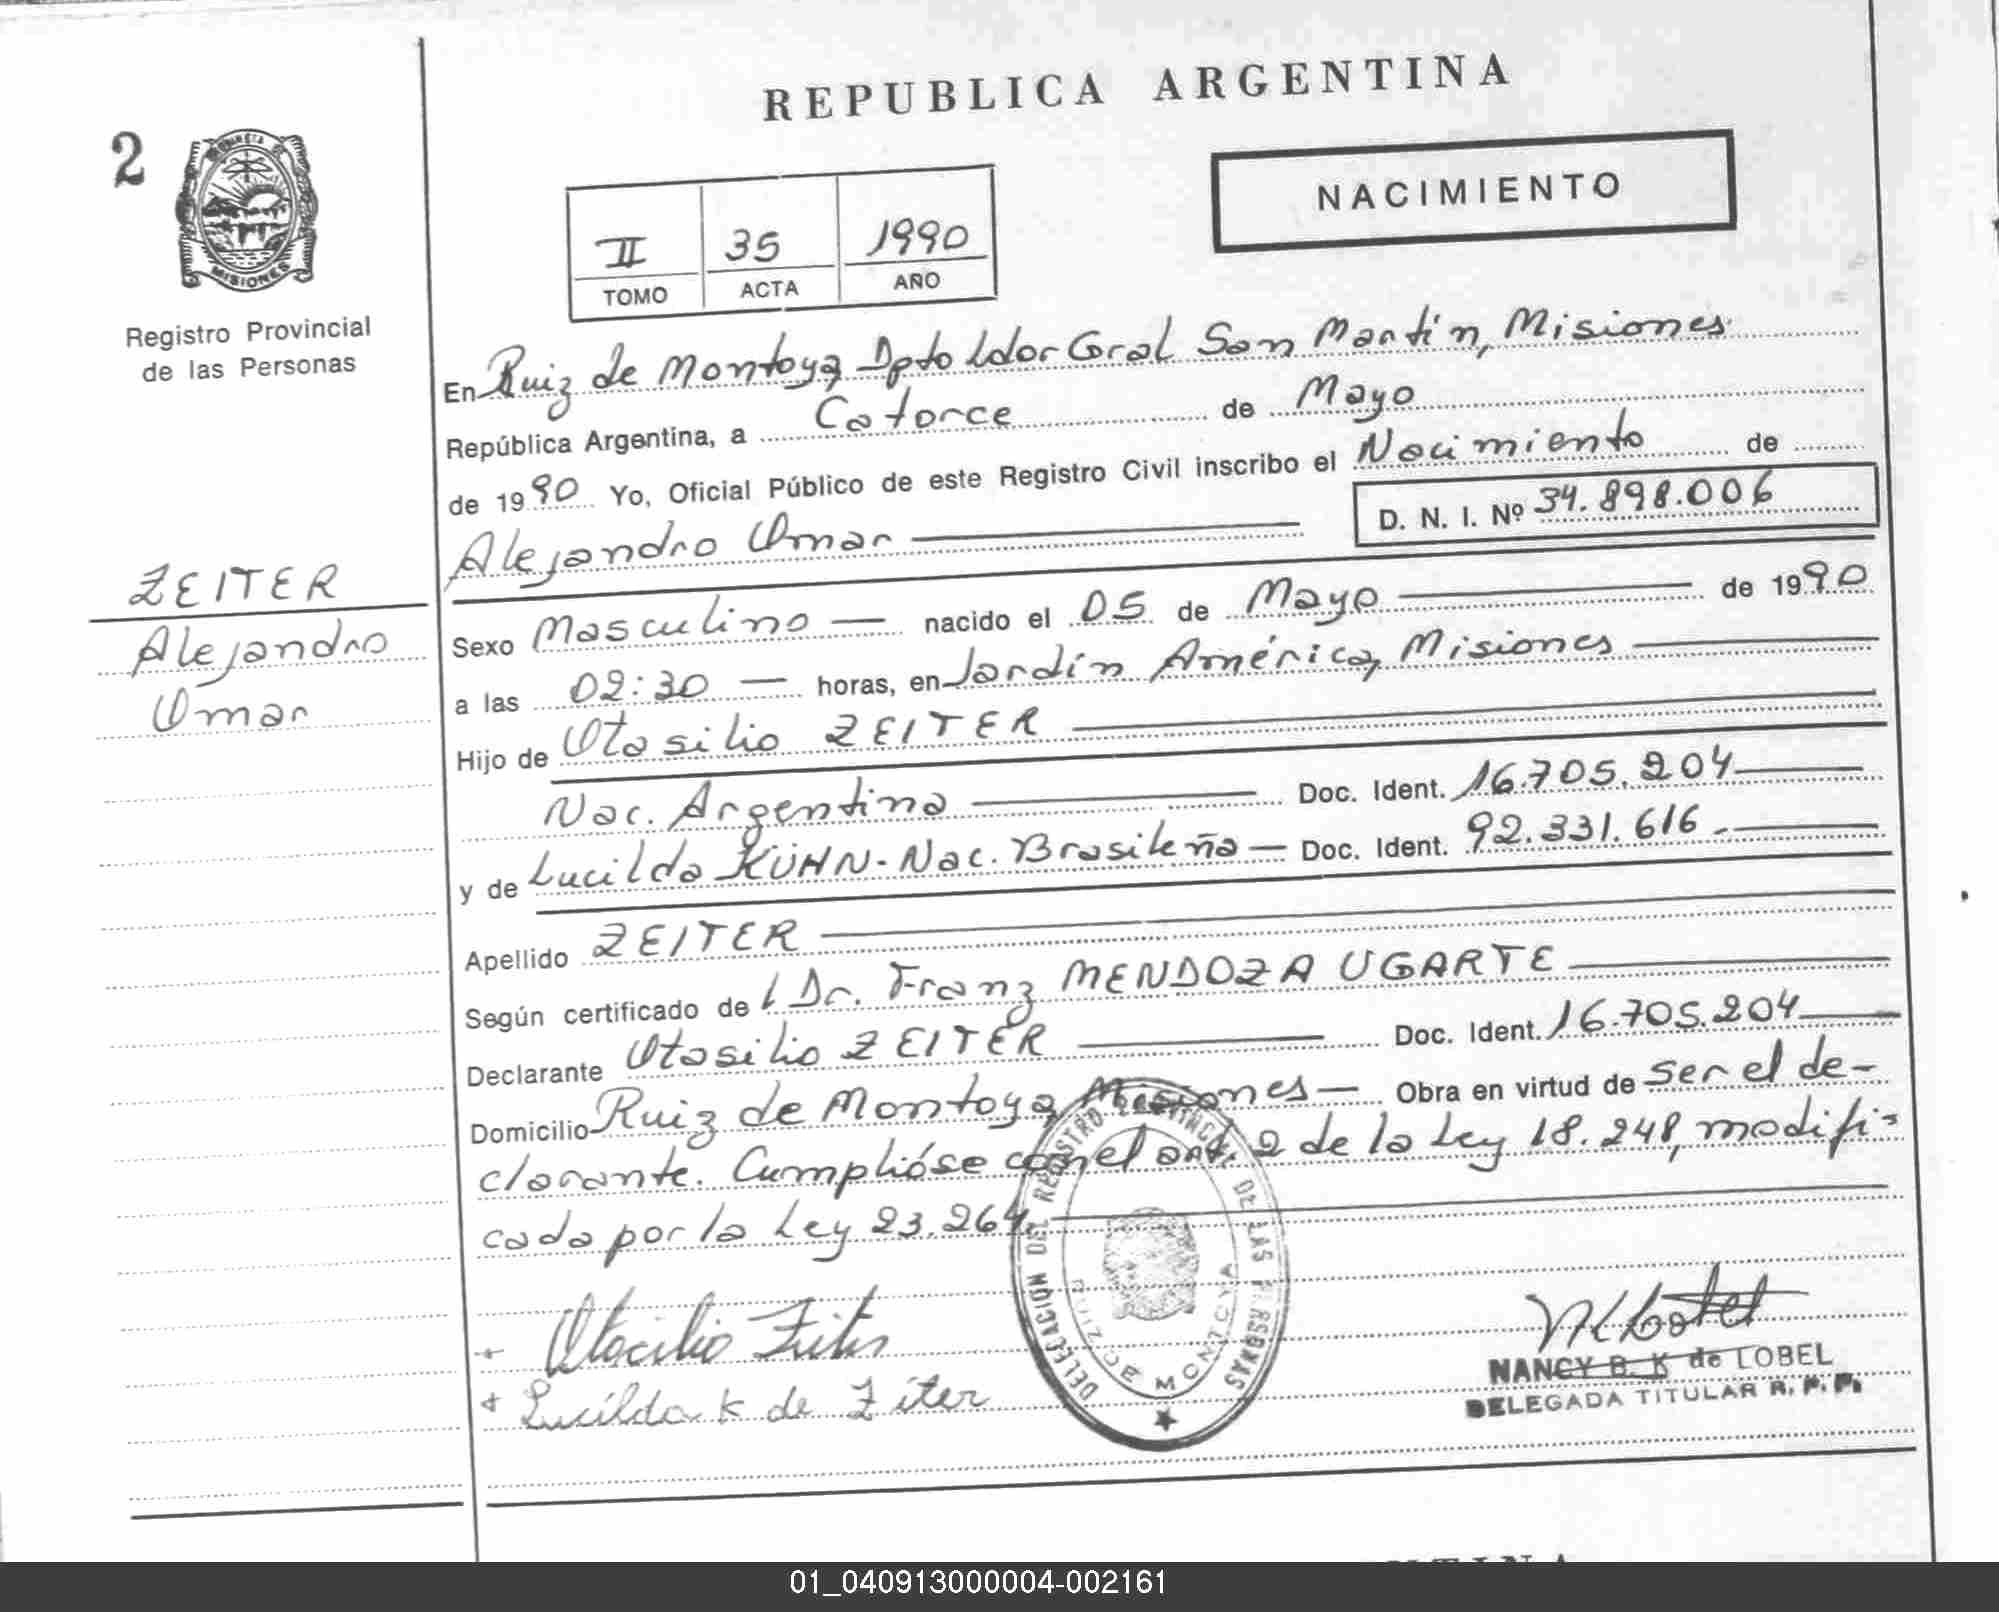 REPUBLICA ARGENTINA
2
NACIMIENTO
II 35 1990
TOMO ACTA AÑO
MISIONES
Registro Provincial
de las Personas
En Ruiz de Montoya, Dpto Ldor Gral San Martín, Misiones
República Argentina, a Catorce de Mayo
de 1990 Yo, Oficial Público de este Registro Civil inscribo el Nacimiento de
D. N. I. Nº 34.898.006
Alejandro Omar
ZEITER
Alejandro
Omar
Sexo Masculino — nacido el 05 de Mayo de 1990
a las 02:30 — horas, en Jardín América, Misiones
Hijo de Otosilio ZEITER
Nac. Argentina Doc. Ident. 16.705.204
y de Lucilda KÜHN - Nac. Brasileña — Doc. Ident. 92.331.616.
Apellido ZEITER
Según certificado de l Dr. Franz MENDOZA UGARTE
Declarante Otosilio ZEITER Doc. Ident. 16.705.204
Domicilio Ruiz de Montoya, Misiones — Obra en virtud de ser el de-
clarante. Cumplióse con el art. 2 de la Ley 18.248, modifi-
cada por la Ley 23.264.
DELEGACION DEL REGISTRO PROVINCIAL DE LAS PERSONAS
RUIZ DE MONTOYA
Otocilio Zeiter
Lucilda K de Ziter
NANCY B. K de LOBEL
DELEGADA TITULAR R. P. P.
01_040913000004-002161